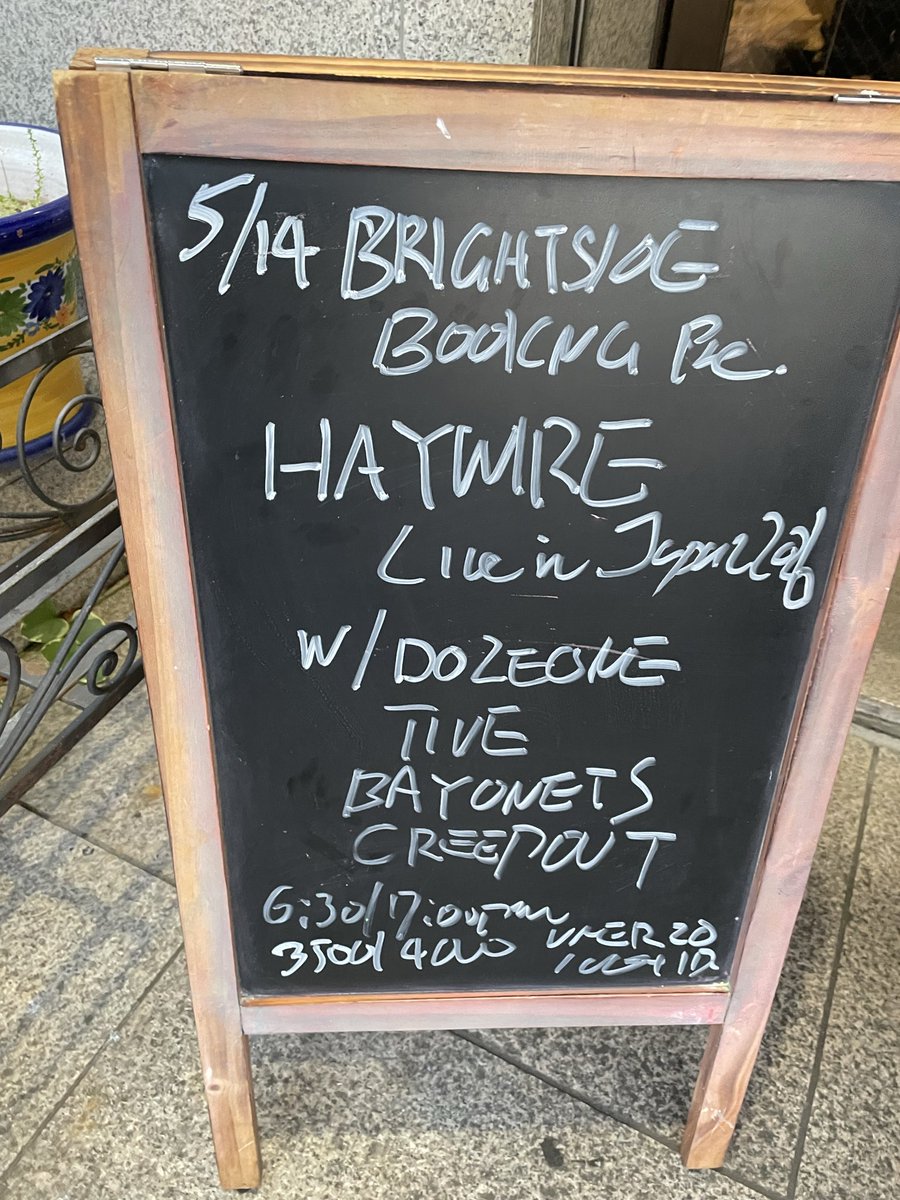 5/14 BRIGHTSIDE
BOOKING Pre.
HAYWIRE
Live in Japan
W/DOZEONE
TIVE
BAYONETS
CREEPOUT
6:30/7:00pm
3500/4000 UNDER 20